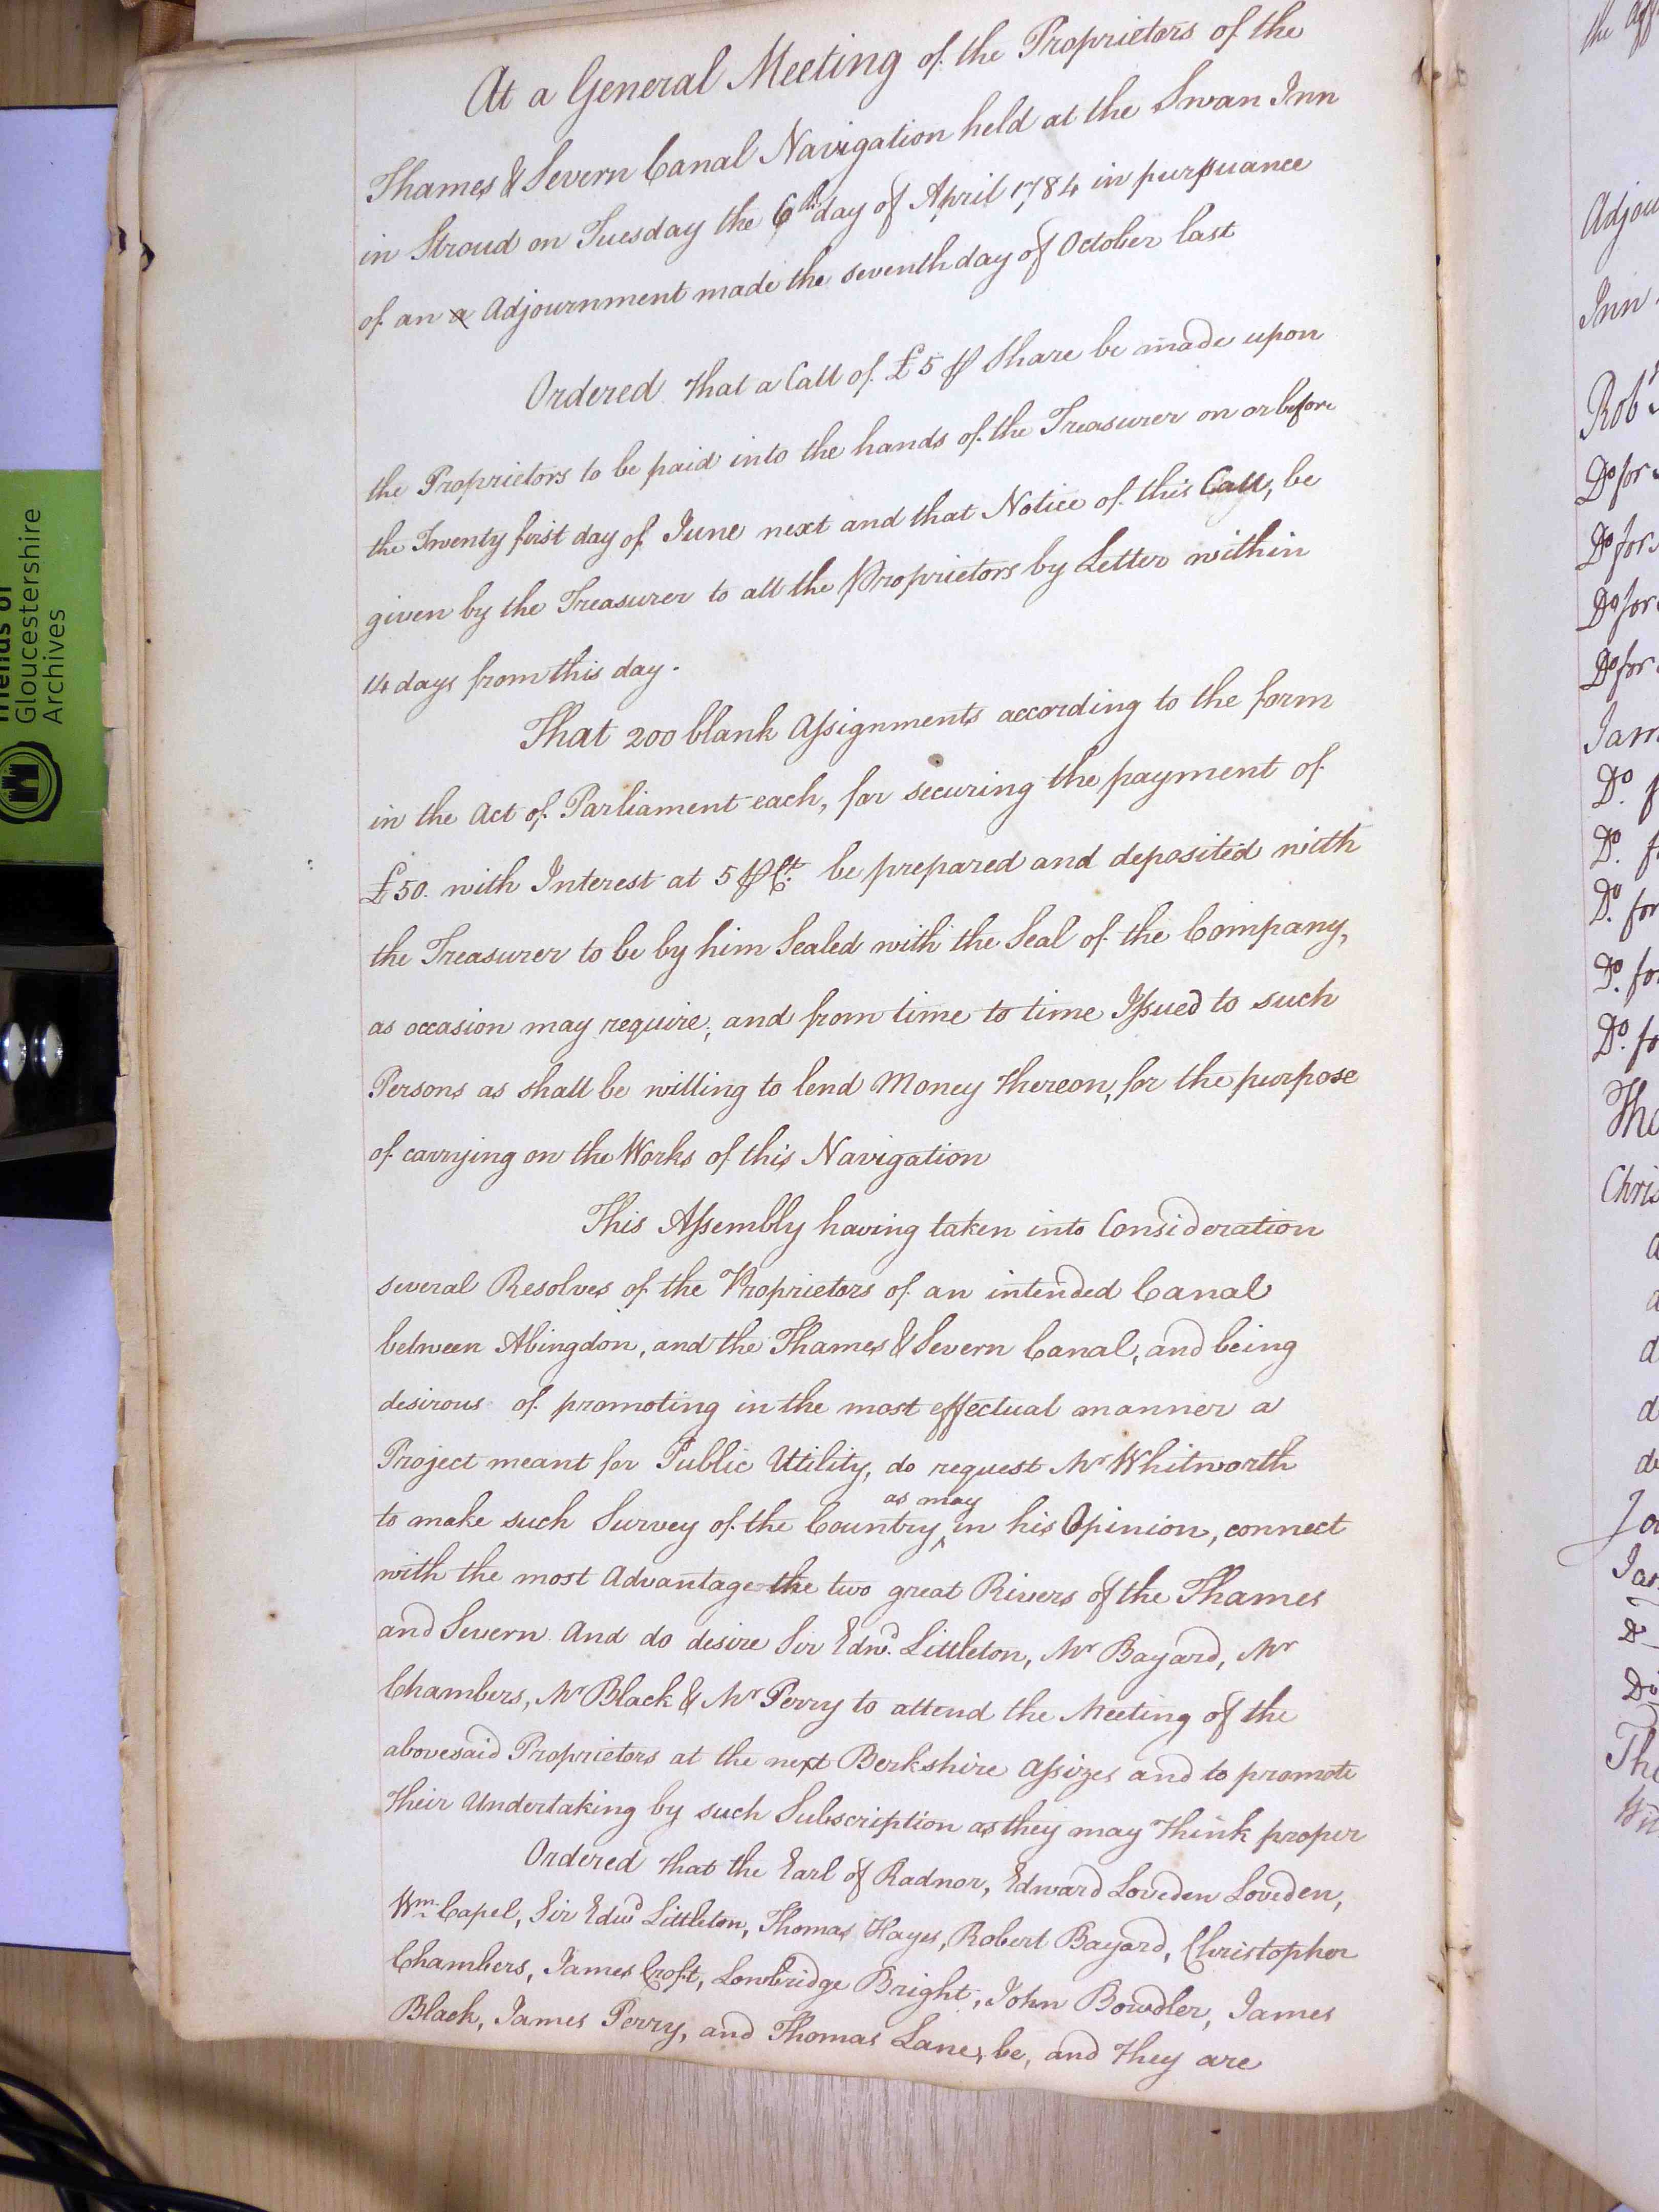 At a General Meeting of the Proprietors of the
Thames & Severn Canal Navigation held at the Swan Inn
in Stroud on Tuesday the 6th day of April 1784 in pursuance
of an a Adjournment made the seventh day of October last
Ordered that a Call of £5 ⅌ Share be made upon
the Proprietors to be paid into the hands of the Treasurer on or before
the Twenty first day of June next and that Notice of this Call, be
given by the Treasurer to all the Proprietors by Letter within
14 days from this day.
That 200 blank Aſsignments according to the form
in the Act of Parliament each, for securing the payment of
£50. with Interest at 5 ⅌ Ct. be prepared and deposited with
the Treasurer to be by him Sealed with the Seal of the Company,
as occasion may require; and from time to time Iſsued to such
Persons as shall be willing to lend Money thereon, for the purpose
of carrying on the Works of this Navigation
This Aſsembly having taken into Consideration
several Resolves of the Proprietors of an intended Canal
between Abingdon, and the Thames & Severn Canal, and being
desirous of promoting in the most effectual manner a
Project meant for Public Utility, do request Mr Whitworth
to make such Survey of the Country ^as may in his Opinion, connect
with the most Advantage the two great Rivers of the Thames
and Severn And do desire Sir Edwd. Littleton, Mr Bayard, Mr
Chambers, Mr Black & Mr Perry to attend the Meeting of the
abovesaid Proprietors at the next Berkshire Aſsizes and to promote
their Undertaking by such Subscription as they may think proper
Ordered that the Earl of Radnor, Edward Loveden Loveden,
Wm. Capel, Sir Edwd Littleton, Thomas Hayes, Robert Bayard, Christopher
Chambers, James Croft, Lowbridge Bright, John Bowdler, James
Black, James Perry, and Thomas Lane, be, and they are
Friends of
Gloucestershire
Archives
the
Adjou
Inn
Robt
Do for
Do for
Do for
Do for
Jam
Do. f
Do. f
Do. for
Do. for
Do. fo
Tho
Chris